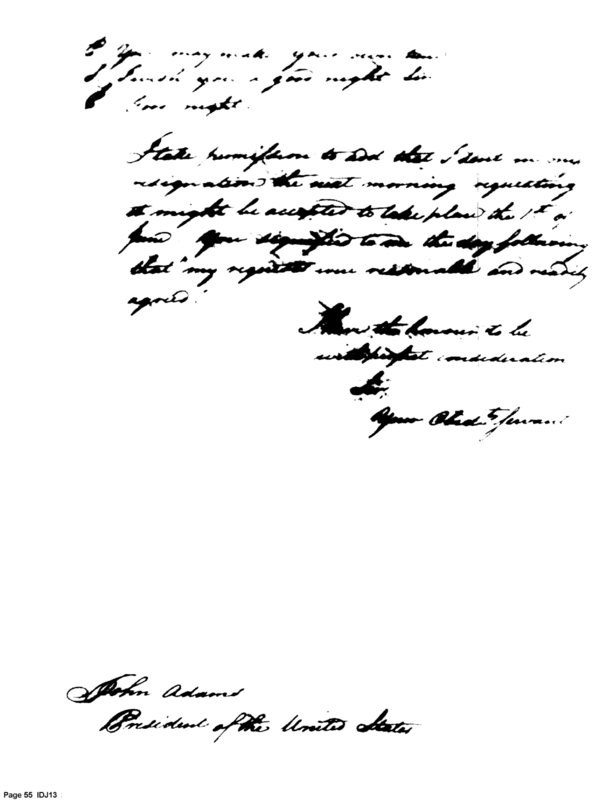 P You may make your own time
S I wish you a good night Sir
P Good night.
I take permission to add that I sent in my
resignation the next morning requesting
it might be accepted to take place the 1st of
June You signified to me the day following
that "my requests were reasonable and readily
agreed."
I have the honour to be
with perfect consideration
Sir,
Your Obedt. Servant
John Adams
President of the United States
Page 55 IDJ13